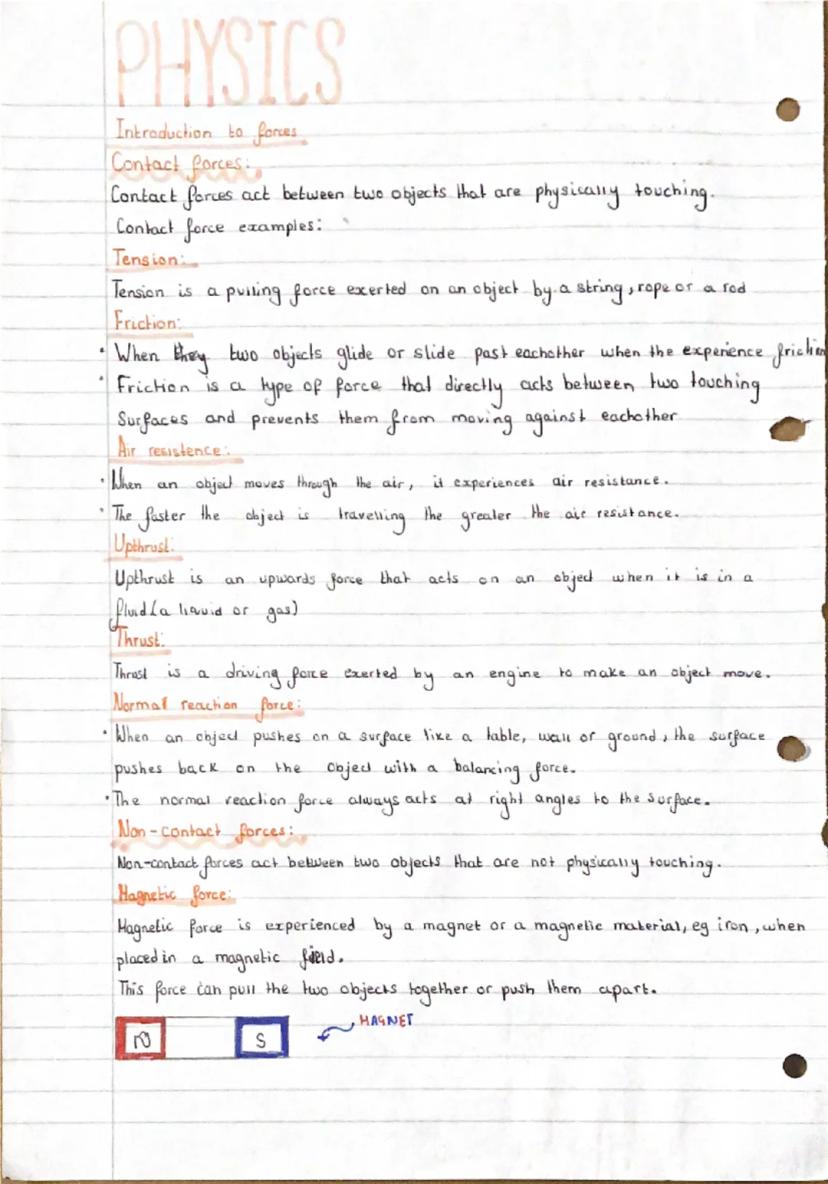 PHYSICS
Introduction to forces
Contact forces:
Contact forces act between two objects that are physically touching.
Contact force examples:
Tension:
Tension is a pulling force exerted on an object by a string, rope or a rod
Friction:
• When they two objects glide or slide past eachother when the experience friction
• Friction is a type of force that directly acts between two touching
Surfaces and prevents them from moving against eachother
Air resistence:
• When an object moves through the air, it experiences air resistance.
• The faster the object is travelling the greater the air resistance.
Upthrust:
Upthrust is an upwards force that acts on an object when it is in a
fluid (a liquid or gas)
Thrust:
Thrust is a driving force exerted by an engine to make an object move.
Normal reaction force:
• When an object pushes on a surface like a table, wall or ground, the surface
pushes back on the object with a balancing force.
• The normal reaction force always acts at right angles to the surface.
Non-contact forces:
Non-contact forces act between two objects that are not physically touching.
Magnetic force:
Magnetic force is experienced by a magnet or a magnetic material, eg iron, when
placed in a magnetic field.
This force can pull the two objects together or push them apart.
N S MAGNET